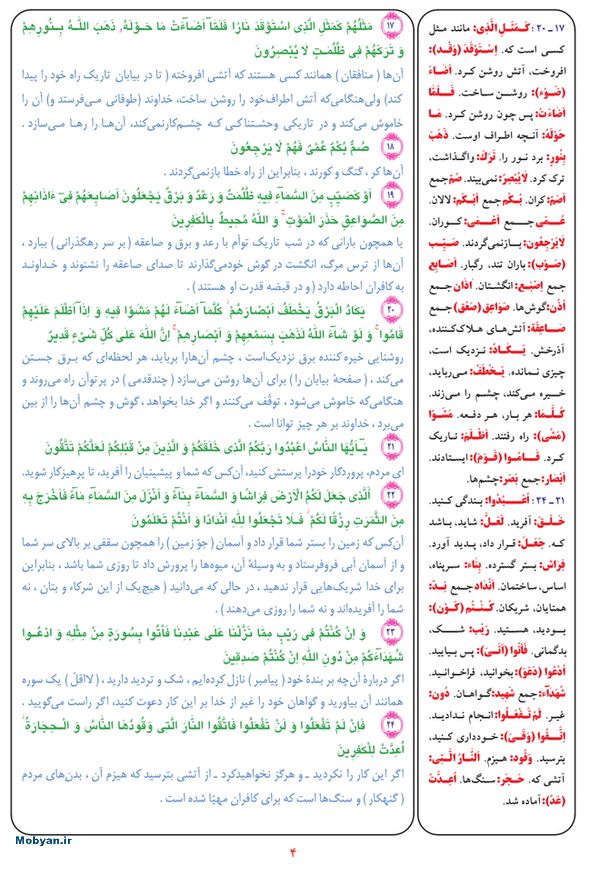 ۱۷ مَثَلُهُمْ كَمَثَلِ الَّذِی اسْتَوْقَدَ نَارًا فَلَمَّا أَضَاءَتْ مَا حَوْلَهُ, ذَهَبَ اللَّـهُ بِـنُورِهِمْ
وَ تَرَكَهُمْ فِی ظُلُمَتٍ لَا يُبْصِرُونَ
آن‌ها ( منافقان ) همانند کسی هستند که آتشی افروخته ( تا در بیابان تاریک راه خود را پیدا
کند) ولی هنگامی‌که آتش اطراف خود را روشن ساخت، خداوند (طوفانی می‌فرستد و) آن را
خاموش می‌کند و در تاریکی وحشتناکی که چشم کار نمی‌کند، آن‌ها را رها می‌سازد .
۱۸ صُمٌّ بُكْمٌ عُمْیٌ فَهُمْ لَا يَرْجِعُونَ
آن‌ها کر ، گنگ و کورند ، بنابراین از راه خطا بازنمی‌گردند .
۱۹ أَوْ كَصَيِّبٍ مِنَ السَّمَاءِ فِيهِ ظُلُمَتٌ وَ رَعْدٌ وَ بَرْقٌ يَجْعَلُونَ أَصَابِعَهُمْ فِی ءَاذَانِهِمْ
مِنَ الصَّوَاعِقِ حَذَرَ الْمَوْتِ وَ اللَّهُ مُحِيطٌ بِالْكَفِرِينَ
یا همچون بارانی که در شب تاریک توأم با رعد و برق و صاعقه ( بر سر رهگذرانی ) ببارد ،
آن‌ها از ترس مرگ، انگشت در گوش خود می‌گذارند تا صدای صاعقه را نشنوند و خداوند
به کافران احاطه دارد ( و در قبضه قدرت او هستند ) .
۲۰ يَكَادُ الْبَرْقُ يَخْطَفُ أَبْصَارَهُمْ كُلَّمَا أَضَاءَ لَهُمْ مَشَوْا فِيهِ وَ إِذَا أَظْلَمَ عَلَيْهِمْ
قَامُوا وَ لَوْ شَاءَ اللَّهُ لَذَهَبَ بِسَمْعِهِمْ وَ أَبْصَارِهِمْ إِنَّ اللَّهَ عَلَى كُلِّ شَیْءٍ قَدِيرٌ
روشنایی خیره کننده برق نزدیک‌است ، چشم آن‌هارا برباید، هر لحظه‌ای که برق جستن
می‌کند ، ( صفحهٔ بیابان را ) برای آن‌ها روشن می‌سازد (چندقدمی ) در پرتو‌آن راه می‌روند و
هنگامی‌که خاموش می‌شود ، توقّف می‌کنند و اگر خدا بخواهد ، گوش و چشم آن‌ها را از بین
می‌برد ، خداوند بر هر چیز توانا است .
۲۱ يَـأَيُّهَا النَّاسُ اعْبُدُوا رَبَّكُمُ الَّذِی خَلَقَكُمْ وَ الَّذِينَ مِنْ قَبْلِكُمْ لَعَلَّكُمْ تَتَّقُونَ
ای مردم، پروردگار خودرا پرستش کنید، آن‌کس که شما و پیشینیان را آفرید، تا پرهیزکار شوید.
۲۲ أَلَّذِی جَعَلَ لَكُمُ الْأَرْضَ فِرَاشًا وَ السَّمَاءَ بِنَاءً وَ أَنْزَلَ مِنَ السَّمَاءِ مَاءً فَأَخْرَجَ بِهِ
مِنَ الثَّمَرَتِ رِزْقًا لَكُمْ فَـلَا تَجْعَلُوا لِلَّهِ أَنْدَادًا وَ أَنْتُمْ تَعْلَمُونَ
آن‌کس که زمین را بستر شما قرار داد و آسمان ( جوّ زمین ) را همچون سقفی بر بالای سر شما
و از آسمان آبی فروفرستاد و به وسیلهٔ آن، میوه‌ها را پرورش داد تا روزی شما باشد ، بنابراین
برای خدا شریک‌هایی قرار ندهید ، در حالی که می‌دانید ( هیچ‌یک از این شرکاء و بتان ، نه
شما را آفریده‌اند و نه شما را روزی می‌دهند ) .
۲۳ وَ إِنْ كُنْتُمْ فِی رَيْبٍ مِمَّا نَزَّلْنَا عَلَى عَبْدِنَا فَأْتُوا بِسُورَةٍ مِنْ مِثْلِهِ وَ ادْعُوا
شُهَدَاءَكُمْ مِنْ دُونِ اللَّهِ إِنْ كُنْتُمْ صَدِقِينَ
اگر دربارهٔ آن‌چه بر بندهٔ خود ( پیامبر ) نازل کرده‌ایم ، شک و تردید دارید ، ( لااقلّ ) یک سوره
همانند آن بیاورید و گواهان خود را غیر از خدا بر این کار دعوت کنید، اگر راست می‌گویید .
۲۴ فَإِنْ لَمْ تَفْعَلُوا وَ لَنْ تَفْعَلُوا فَاتَّقُوا النَّارَ الَّتِی وَقُودُهَا النَّاسُ وَ الْـحِجَارَةُ
أُعِدَّتْ لِلْكَفِرِينَ
اگر این کار را نکردید ـ و هرگز نخواهیدکرد ـ از آتشی بترسید که هیزم آن ، بدن‌های مردم
( گنهکار ) و سنگ‌ها است که برای کافران مهیّا شده است .
۱۷ ـ ۲۰ : كَـمَثَلِ الَّذِی: مانند مثل
کسی است که. اِسْتَوْقَدَ (وَقَدَ):
افروخت، آتش روشن کرد. أَضَاءَ
(ضَوْء): روشـن ساخت. فَـلَـمَّا
أَضَاءَتْ: پس چون روشن کرد. مَا
حَوْلَهُ: آنچه اطراف اوست. ذَهَبَ
بِنُورِ: برد نور را. تَرَكَ: واگـذاشت،
ترک کرد. لَا يُبْصِرُ: نمی‌بیند. صُمّ جمع
أَصَمّ: کران. بُـكْم جمع أَبْـكَم: لالان.
عُـمْی جـمـع أَعْـمَى: کـوران.
لَا يَرْجِعُونَ: بـازنمی‌گردند. صَـيِّـب
(صَوْب): باران تند، رگبار. أَصَابِع
جمع إِصْبَع: انگشتان. أٰذَان جمع
أُذُن: گوش‌ها. صَوَاعِق (صَعْق) جمع
صَـاعِقَة: آتش‌های هـلاک‌کننده،
آذرخش. يَـكَـادُ: نزدیک است،
چیزی نمانده. يَخْطَفُ: می‌رباید،
خیره می‌کند، چشم را می‌زند.
كُلَّـمَا: هر بار، هـر دفـعه. مَشَـوْا
(مَشْی): راه رفتند. أَظْلَمَ: تاریک
کرد. قَـامُـوا (قَـوْم): ایستادند.
أَبْصَار: جمع بَصَر: چشم‌ها.
۲۱ ـ ۲۴ : أُعْـبُـدُوا: بندگی کنید.
خَـلَـقَ: آفرید. لَعَلَّ: شاید، باشد
که. جَعَلَ: قرار داد، پدید آورد.
فِرَاش: بستر گسترده. بِنَاء: سرپناه،
اساس، ساختمان. أَنْدَاد جـمع نِـدّ:
همتایان، شریکان. كُـنْـتُم (كَوْن):
بودید، هستید. رَيْب: شـک،
بدگمانی. فَأْتُوا (أَتْی): پس بیایید.
أُدْعُوا (دَعَوَ): بخوانید، فراخوانید.
شُهَدَاء: جمع شهید: گـواهـان. دُون:
غیر. لَمْ تَـفْـعَـلُوا: انجام ندادید.
إِتَّـقُوا (وَقْی): خودداری کنید،
بترسید. وَقُود: هیزم. أَلنَّارُ الَّتِی:
آتشی که. حَـجَـر: سنگ‌ها. أُعِدَّتْ
(عَدّ): آماده شد.
Mobyan.ir
۴